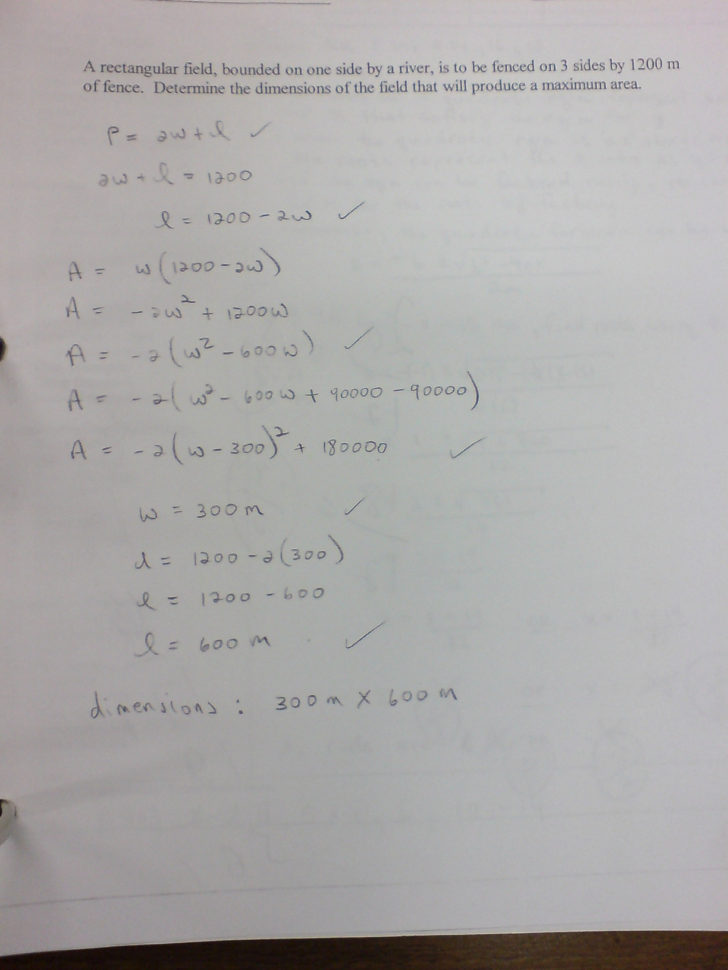 A rectangular field, bounded on one side by a river, is to be fenced on 3 sides by 1200 m
of fence. Determine the dimensions of the field that will produce a maximum area.
P = 2w + l ✓
2w + l = 1200
l = 1200 - 2w ✓
A = w(1200 - 2w)
A = -2w² + 1200w
A = -2(w² - 600w) ✓
A = -2(w² - 600w + 90000 - 90000)
A = -2(w - 300)² + 180000 ✓
w = 300 m ✓
l = 1200 - 2(300)
l = 1200 - 600
l = 600 m ✓
dimensions : 300 m X 600 m